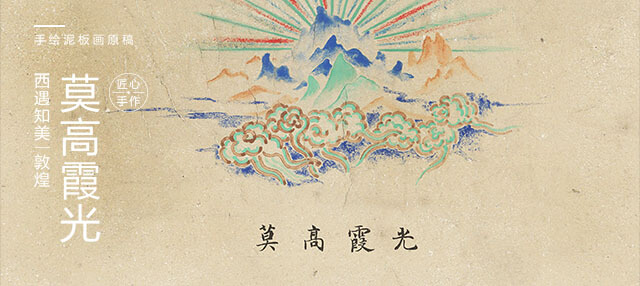 手绘泥板画原稿
匠心
手作
莫高霞光
西遇知美一敦煌
莫高霞光